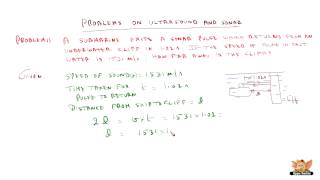 PROBLEMS ON ULTRASOUND AND SONAR
PROBLEM 1: A SUBMARINE EMITS A SONAR PULSE WHICH RETURNS FROM AN
UNDERWATER CLIFF IN 1.02 s. IF THE SPEED OF SOUND IN SALT
WATER IS 1531 m/s HOW FAR AWAY IS THE CLIFF?
GIVEN:
SPEED OF SOUND(v) = 1531 m/s
TIME TAKEN FOR t = 1.02 s
PULSE TO RETURN
DISTANCE FROM SHIP TO CLIFF = l
2l = v x t = 1531 x 1.02
l = 1531 x 1
Cliff